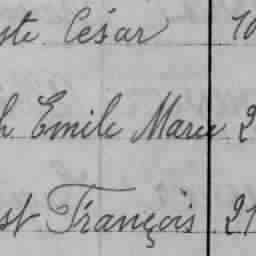 ste César 10
h Emile Marie 2
st François 21